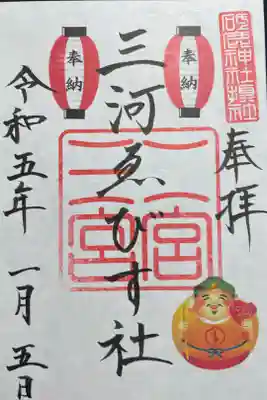 奉拝
砥鹿神社境内摂社
奉納
奉納
三河ゑびす社
一宮
二宮
三宮
令和五年 一月 五日